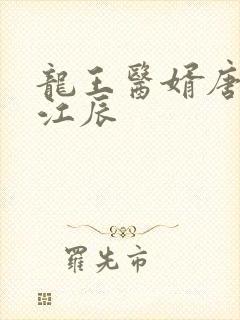 龍王醫婿唐
江辰
羅先市